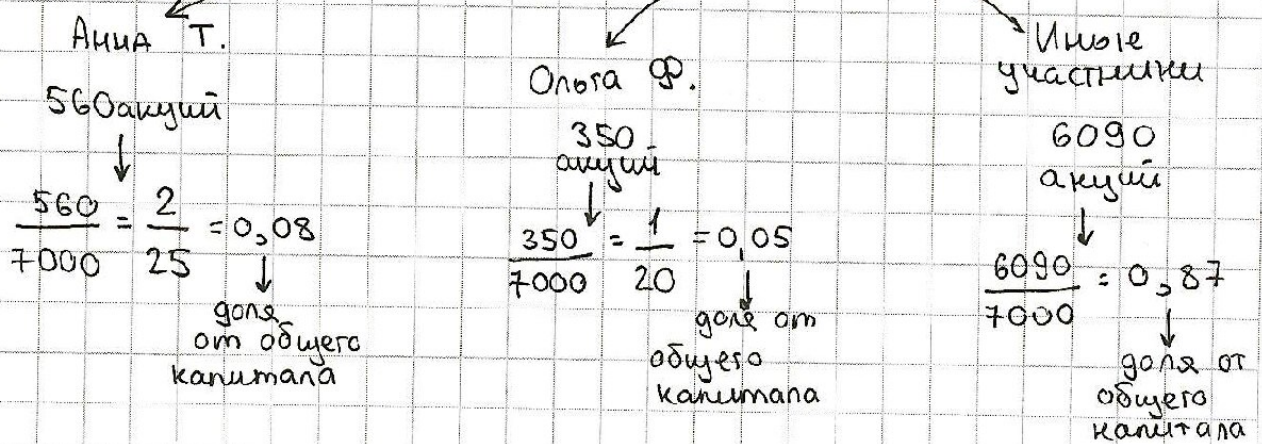 Анна Т.
560 акций
560/7000 = 2/25 = 0,08
доля
от общего
капитала
Ольга Ф.
350
акций
350/7000 = 1/20 = 0,05
доля от
общего
капитала
Иные
участники
6090
акций
6090/7000 = 0,87
доля от
общего
капитала